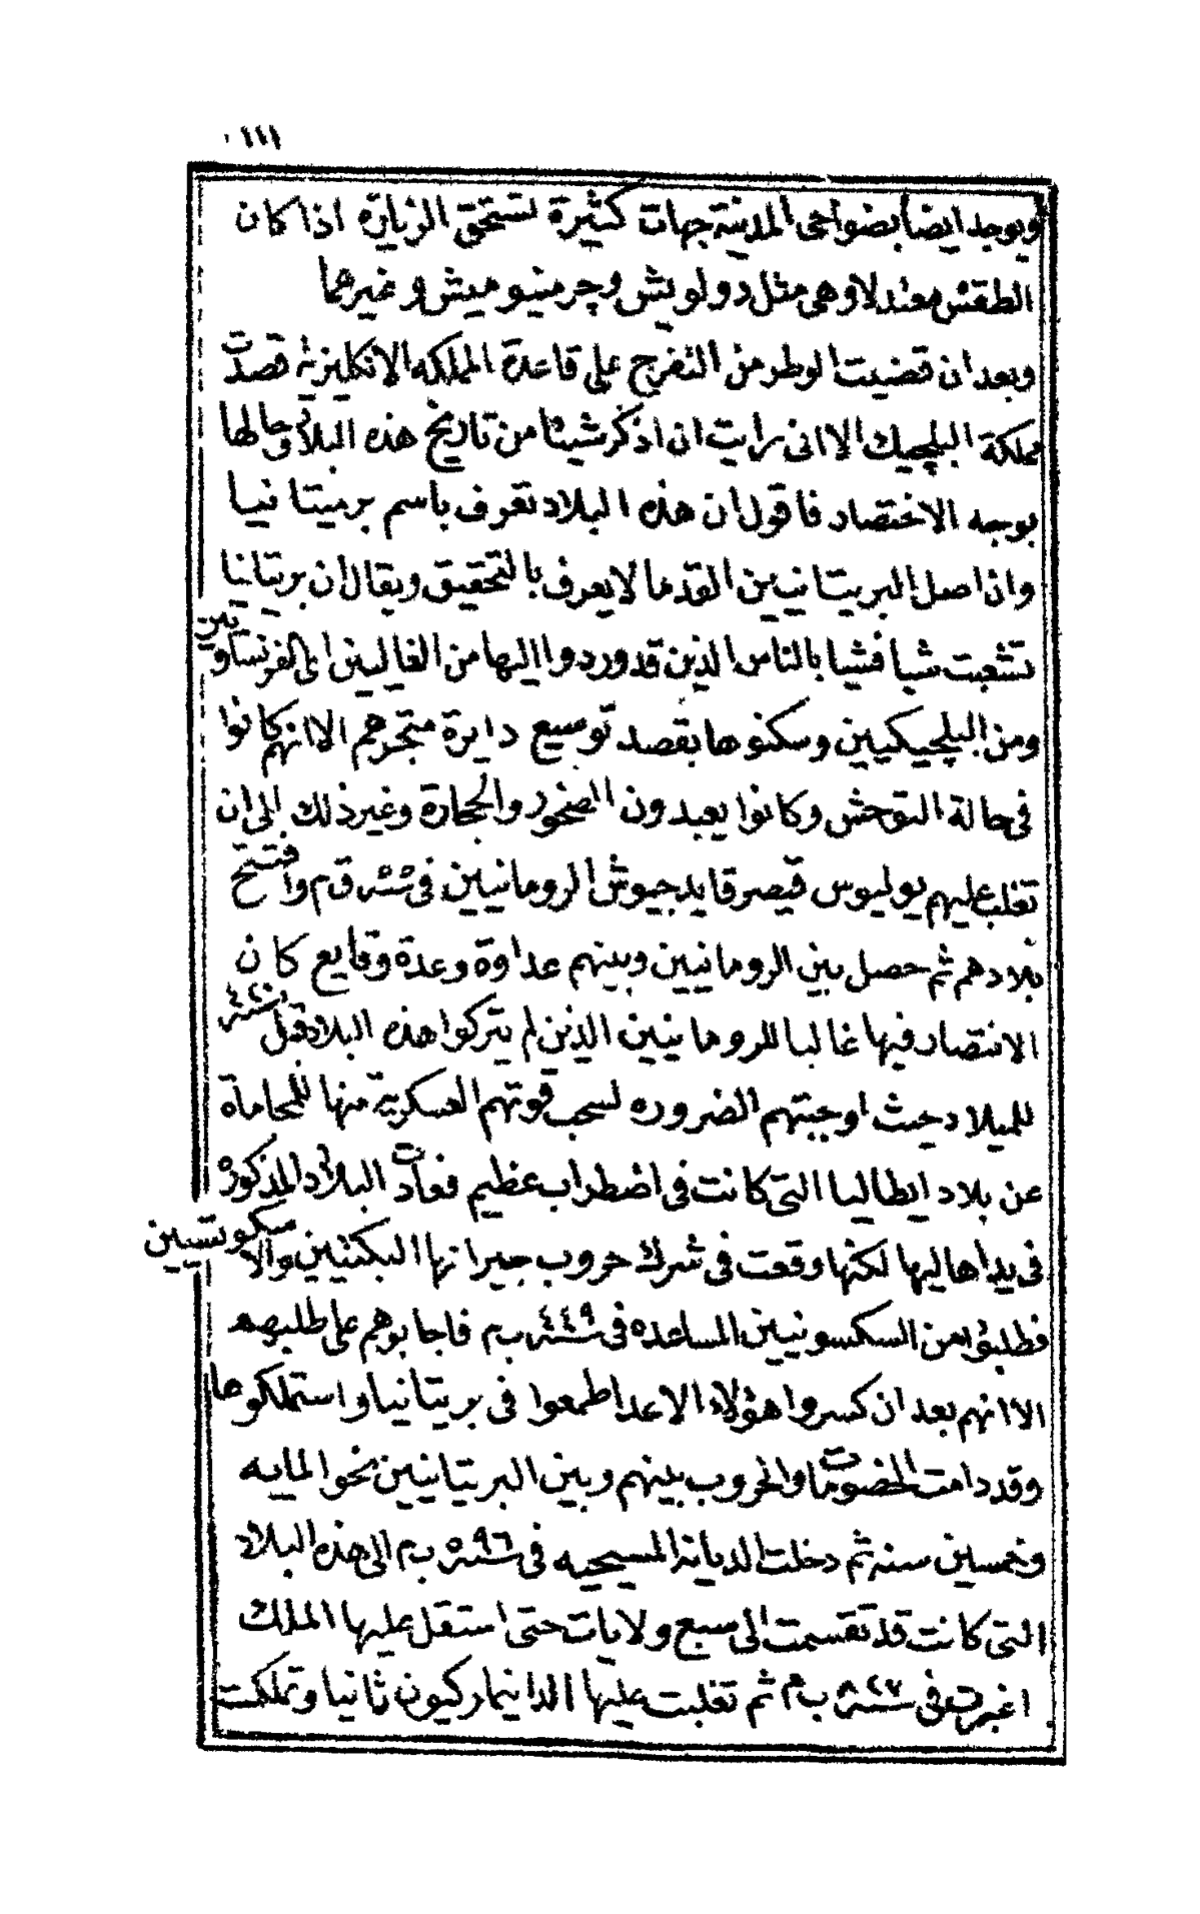 ١١١
ويوجد ايضا بضواحى المدينة جهات كثيرة تستحق الزيارة اذا كان
الطقس معتدلا وهى مثل دولويش وچرمنيو ميش وغيرهما
وبعد ان قضيت الوطر من التفرج على قاعدة المملكه الانكليزية قصدت
مملكة البلچيك الا انى رايت ان اذكر شيئا من تاريخ هذه البلاد وحالها
بوجه الاختصار فاقول ان هذه البلاد تعرف باسم بريتا نيا
وان اصل البريتانيين القدما لا يعرف بالتحقيق ويقال ان بريتانيا
تشعبت شيا فشيا بالناس الذين قد وردوا اليها من الغاليين اى الفرنساويين
ومن البلچيكيين وسكنوها بقصد توسيع دايرة متجرهم الا انهم كانوا
فى حالة التوحش وكانوا يعبدون الصخور والحجارة وغير ذلك الى ان
تغلب عليهم يوليوس قيصر قايد جيوش الرومانيين فى سنة ٥٥ ق م وافتتح
بلادهم ثم حصل بين الرومانيين وبينهم عداوة وعدة وقايع كان
الانتصار فيها غالبا للرومانيين الذين لم يتركوا هذه البلاد قبل سنة ٤٢٠
للميلاد حيث اوجبتهم الضروره لسحب قوتهم العسكرية منها للمحاماة
عن بلاد ايطاليا التى كانت فى اضطراب عظيم فعادت البلاد المذكوره
فى يد اهاليها لكنها وقعت فى شرك حروب جيرانها البكتيين والاسكوتسيين
فطلبوا من السكسونيين المساعده فى سنة ٤٤٩ ب م فاجابوهم على طلبهم
الا انهم بعد ان كسروا هؤلاء الاعدا طمعوا فى بريتانيا واستملكوها
وقد دامت الخصومات والحروب بينهم وبين البريتانيين نحو المايه
وخمسين سنه ثم دخلت الديانة المسيحيه فى سنة ٥٩٦ ب م الى هذه البلاد
التى كانت قد تقسمت الى سبع ولايات حتى استقل عليها الملك
اغبرت فى سنة ٨٢٧ ب م ثم تغلبت عليها الدانيماركيون ثانيا وتملكت